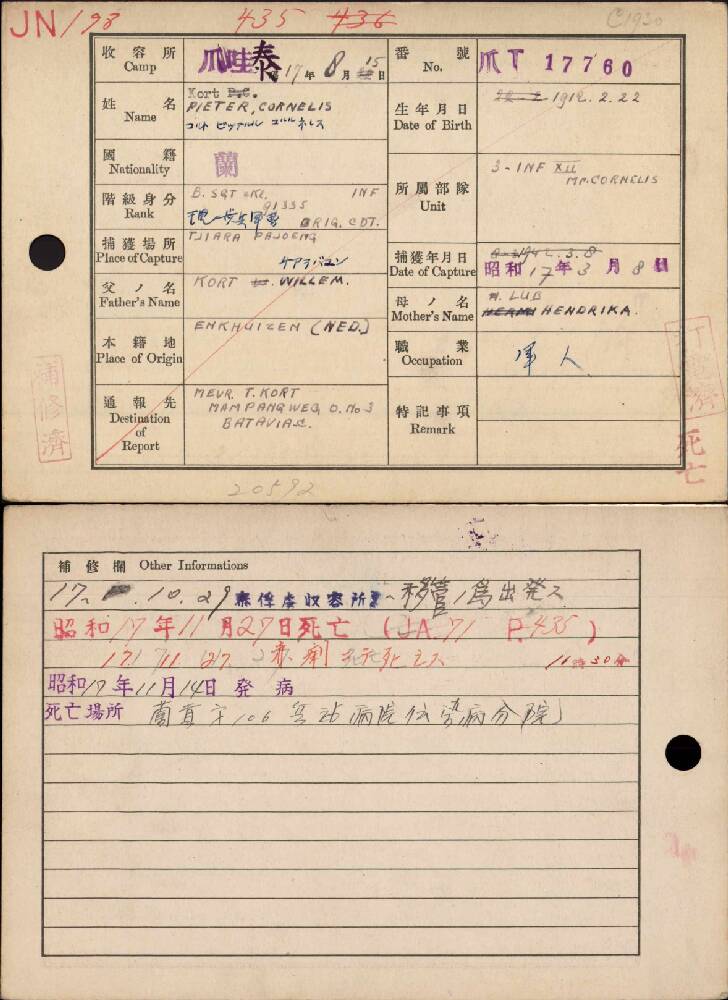 JN/98
435 436
C1930
收容所 Camp 爪哇 泰 17年8月15日
番號 No. 爪T 17760
姓名 Name Kort P.C. PIETER, CORNELIS
コルト ピーテル コルネレス
生年月日 Date of Birth 1912.2.22
國籍 Nationality 蘭
所屬部隊 Unit 3-INF XII
Mr. CORNELIS
階級身分 Rank B. SGT 91335 INF
BRIG. CDT.
捕獲場所 Place of Capture TJIARA PAJOENG
捕獲年月日 Date of Capture 昭和17年3月8日
父ノ名 Father's Name KORT W. WILLEM.
母ノ名 Mother's Name H. LUB
HENDRIKA.
本籍地 Place of Origin ENKHUIZEN (NED.)
職業 Occupation 軍人
通報先 Destination of Report MEVR. T. KORT
MAMPANGWEG O. No 3
BATAVIA C.
特記事項 Remark
補修濟
死亡
20592
補修欄 Other Informations
17. 10. 29 泰俘虜収容所ヘ移管ノ爲出発ス
昭和17年11月27日死亡 (JA.71 P.435)
17/11/27 赤痢 死亡ス 11時30分
昭和17年11月14日発病
死亡場所 106 兵站病院伝染病分院